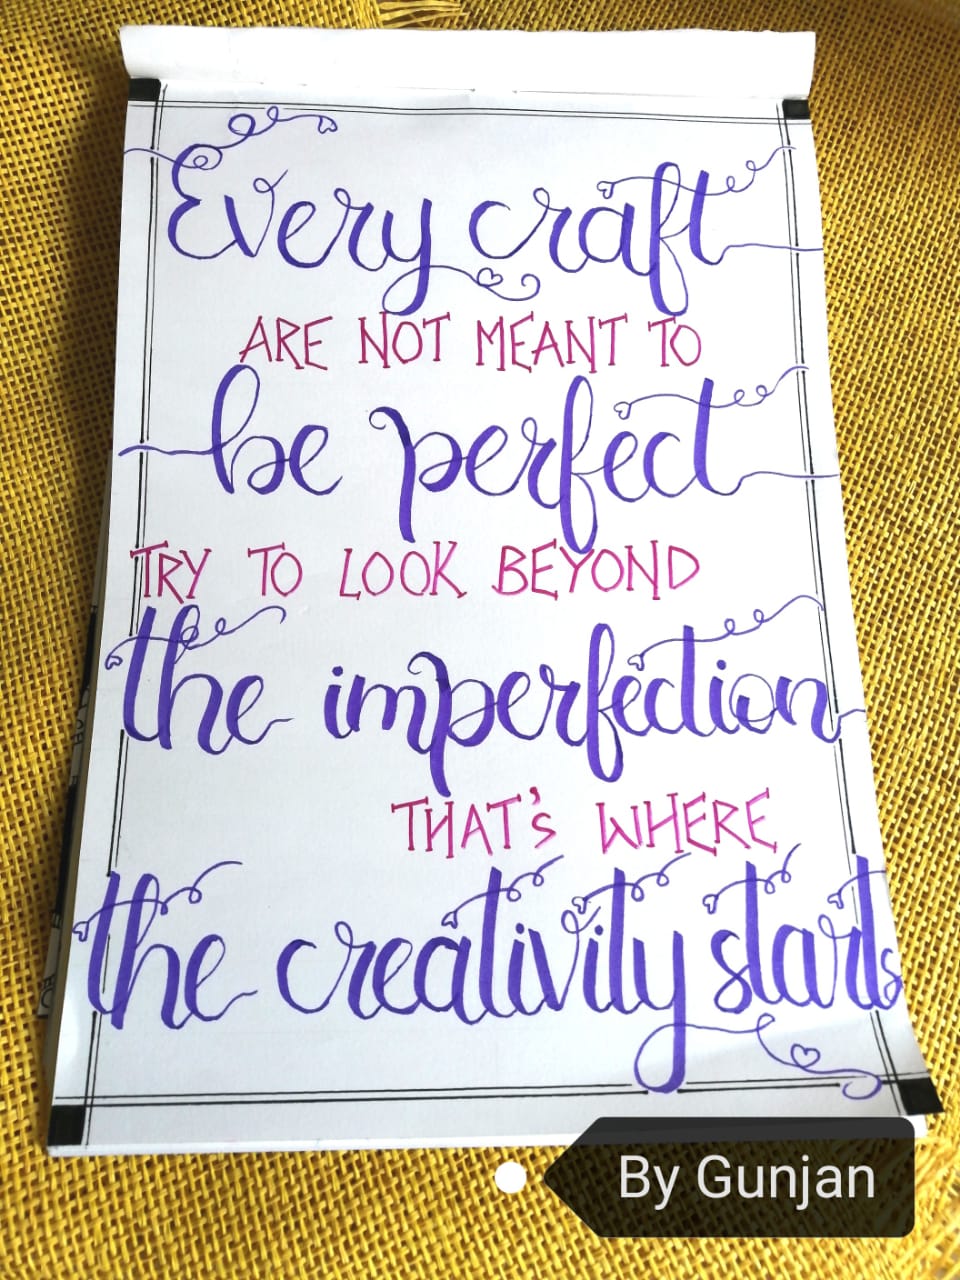 Every craft
ARE NOT MEANT TO
be perfect
TRY TO LOOK BEYOND
the imperfection
THAT'S WHERE
the creativity starts
By Gunjan